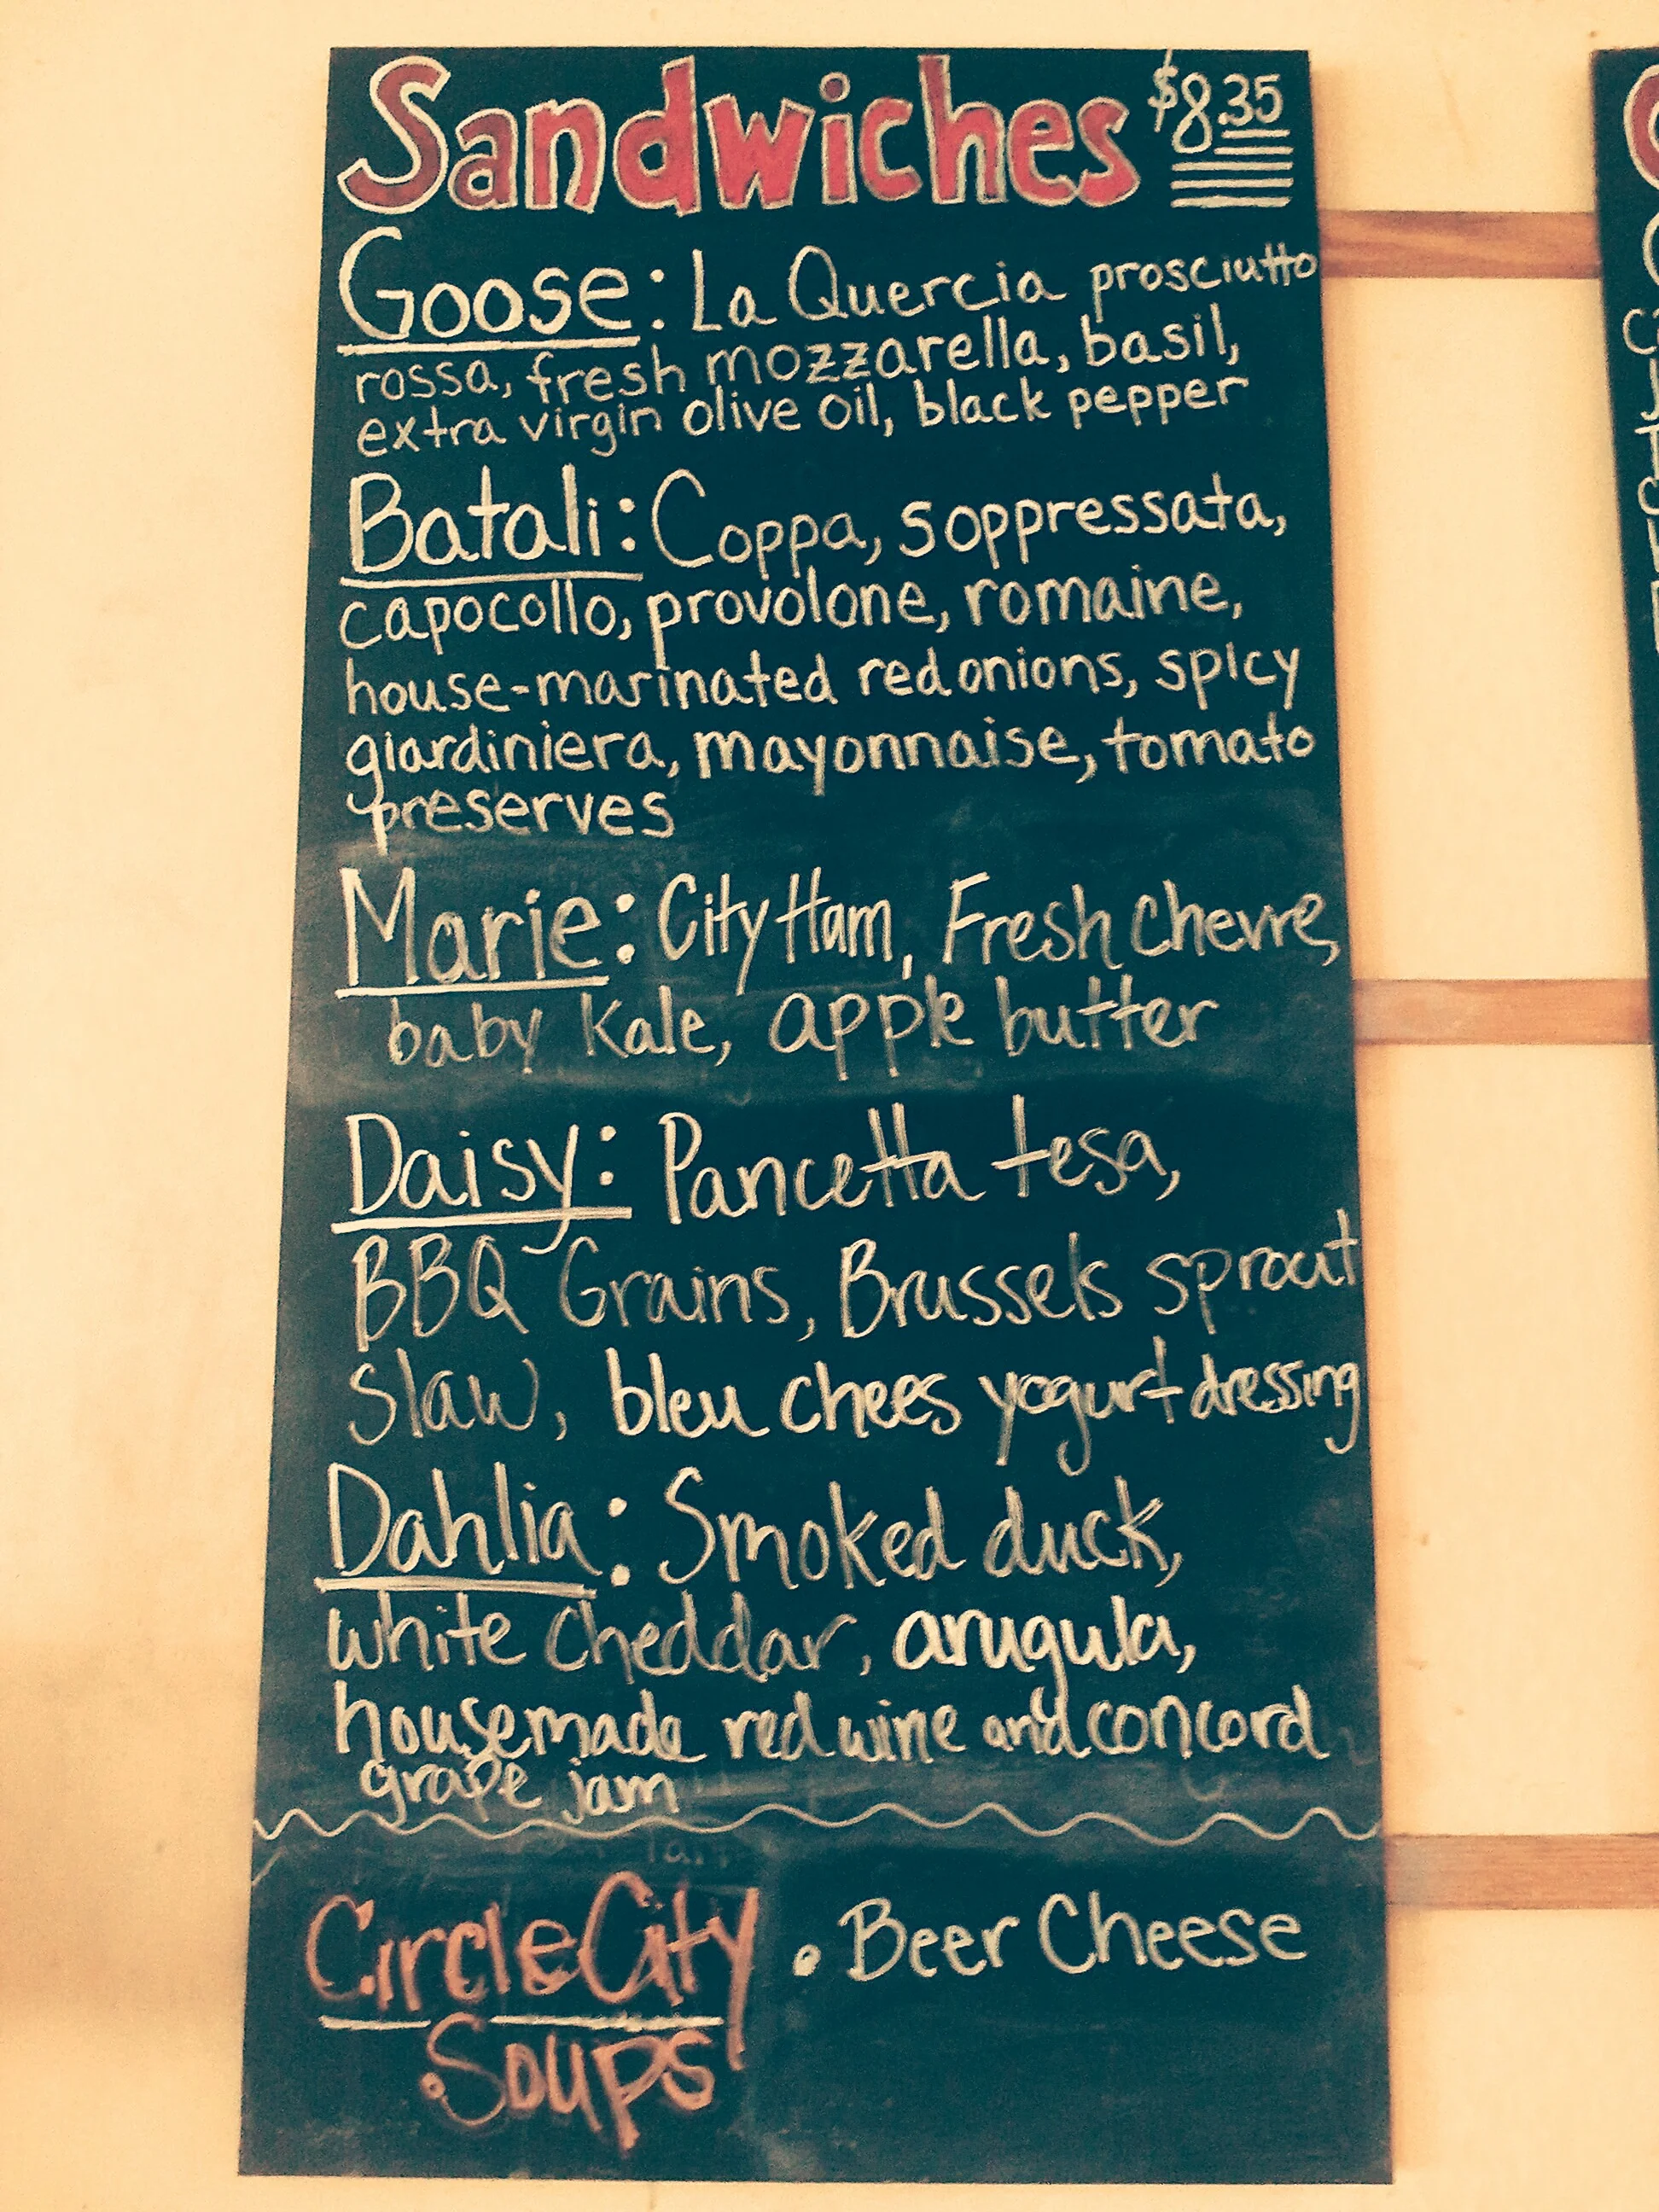 Sandwiches $8.35
Goose: La Quercia prosciutto
rossa, fresh mozzarella, basil,
extra virgin olive oil, black pepper
Batali: Coppa, soppressata,
capocollo, provolone, romaine,
house-marinated red onions, spicy
giardiniera, mayonnaise, tomato
preserves
Marie: City Ham, Fresh chevre,
baby Kale, apple butter
Daisy: Pancetta tesa,
BBQ Grains, Brussels sprout
slaw, bleu chees yogurt dressing
Dahlia: Smoked duck,
white cheddar, arugula,
housemade red wine and concord
grape jam
Circle City
Soups
• Beer Cheese